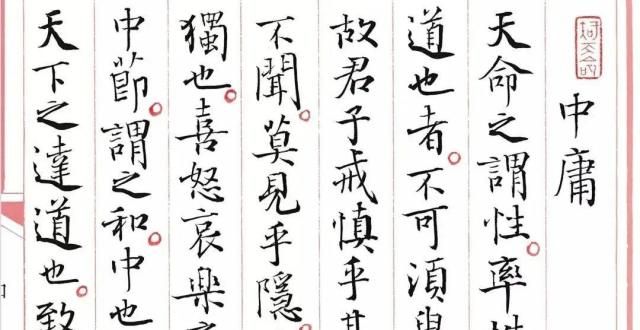 中庸
天命之謂性。率性
道也者。不可須臾
故君子戒慎乎其
不聞。莫見乎隱。
獨也。喜怒哀樂之
中節。謂之和。中也
天下之達道也。致